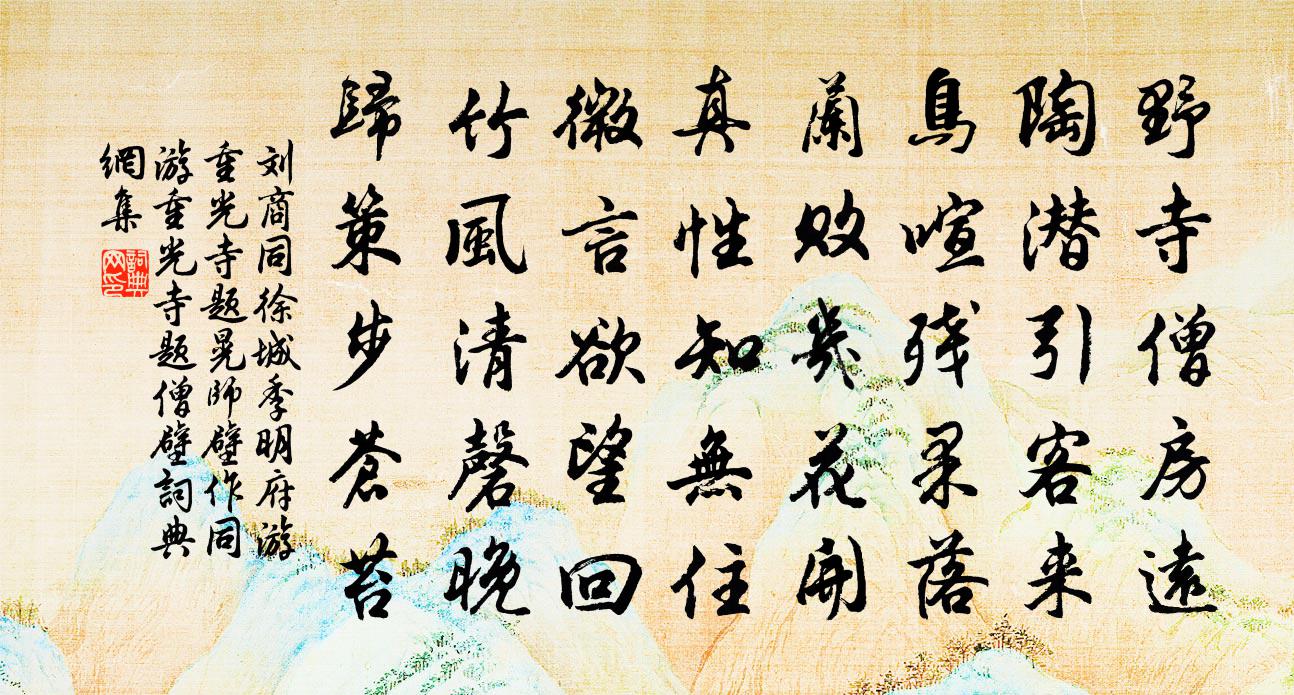 野寺僧房遠
陶潜引客来
鳥喧残果落
蘭敗幾花開
真性知無住
微言欲望回
竹風清磬晚
歸策步蒼苔
刘商同徐城季明府游
重光寺题晃師壁作同
游重光寺题僧壁詞典
網集
詞典
网印